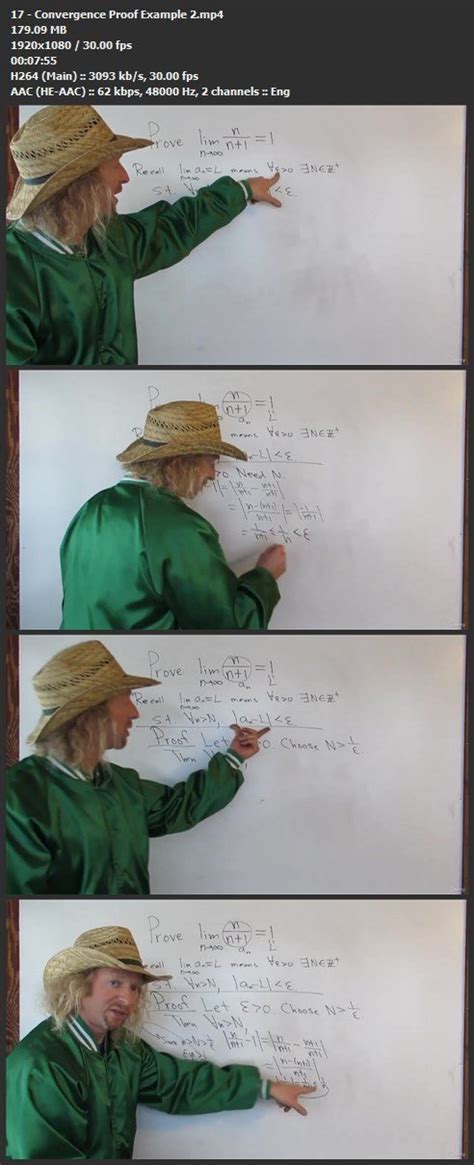 17 - Convergence Proof Example 2.mp4
179.09 MB
1920x1080 / 30.00 fps
00:07:55
H264 (Main) :: 3093 kb/s, 30.00 fps
AAC (HE-AAC) :: 62 kbps, 48000 Hz, 2 channels :: Eng
Prove lim n→∞ n/(n+1) = 1
Recall lim n→∞ aₙ = L means ∀ε>0 ∃N∈ℤ⁺
s.t. <ε.
n/(n+1) = 1
aₙ L
means ∀ε>0 ∃N∈ℤ⁺
-L|<ε.
>0. Need N.
-1| = |n/(n+1) - (n+1)/(n+1)|
= |(n-(n+1))/(n+1)| = |-1/(n+1)|
= 1/(n+1) ≤ 1/n < ε
Prove lim n→∞ n/(n+1) = 1
aₙ L
Recall lim n→∞ aₙ = L means ∀ε>0 ∃N∈ℤ⁺
s.t. ∀n>N, |aₙ-L|<ε.
Proof Let >0. Choose N>1/ε
Then
Prove lim n→∞ n/(n+1) = 1
aₙ L
lim n→∞ aₙ = L means ∀ε>0 ∃N∈ℤ⁺
s.t. ∀n>N, |aₙ-L|<ε.
Proof Let ε>0. Choose N>1/ε
Then ∀n>N,
|n/(n+1) - 1| = |n/(n+1) - (n+1)/(n+1)|
= |(n-(n+1))/(n+1)|